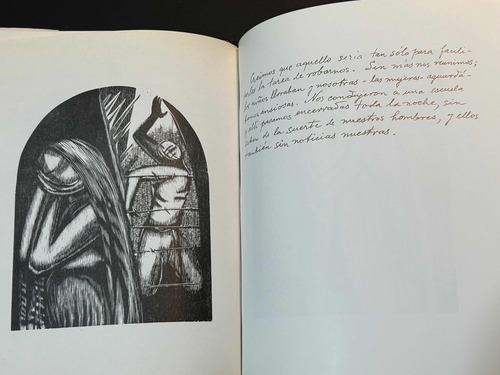 Creímos que aquello sería tan sólo para facili-
tarles la tarea de robarnos. Sin más nos reunimos;
los niños lloraban y nosotras -las mujeres- aguardá-
bamos ansiosas. Nos condujeron a una escuela
y allí pasamos encerradas toda la noche, sin
saber de la suerte de nuestros hombres, y ellos
también sin noticias nuestras.